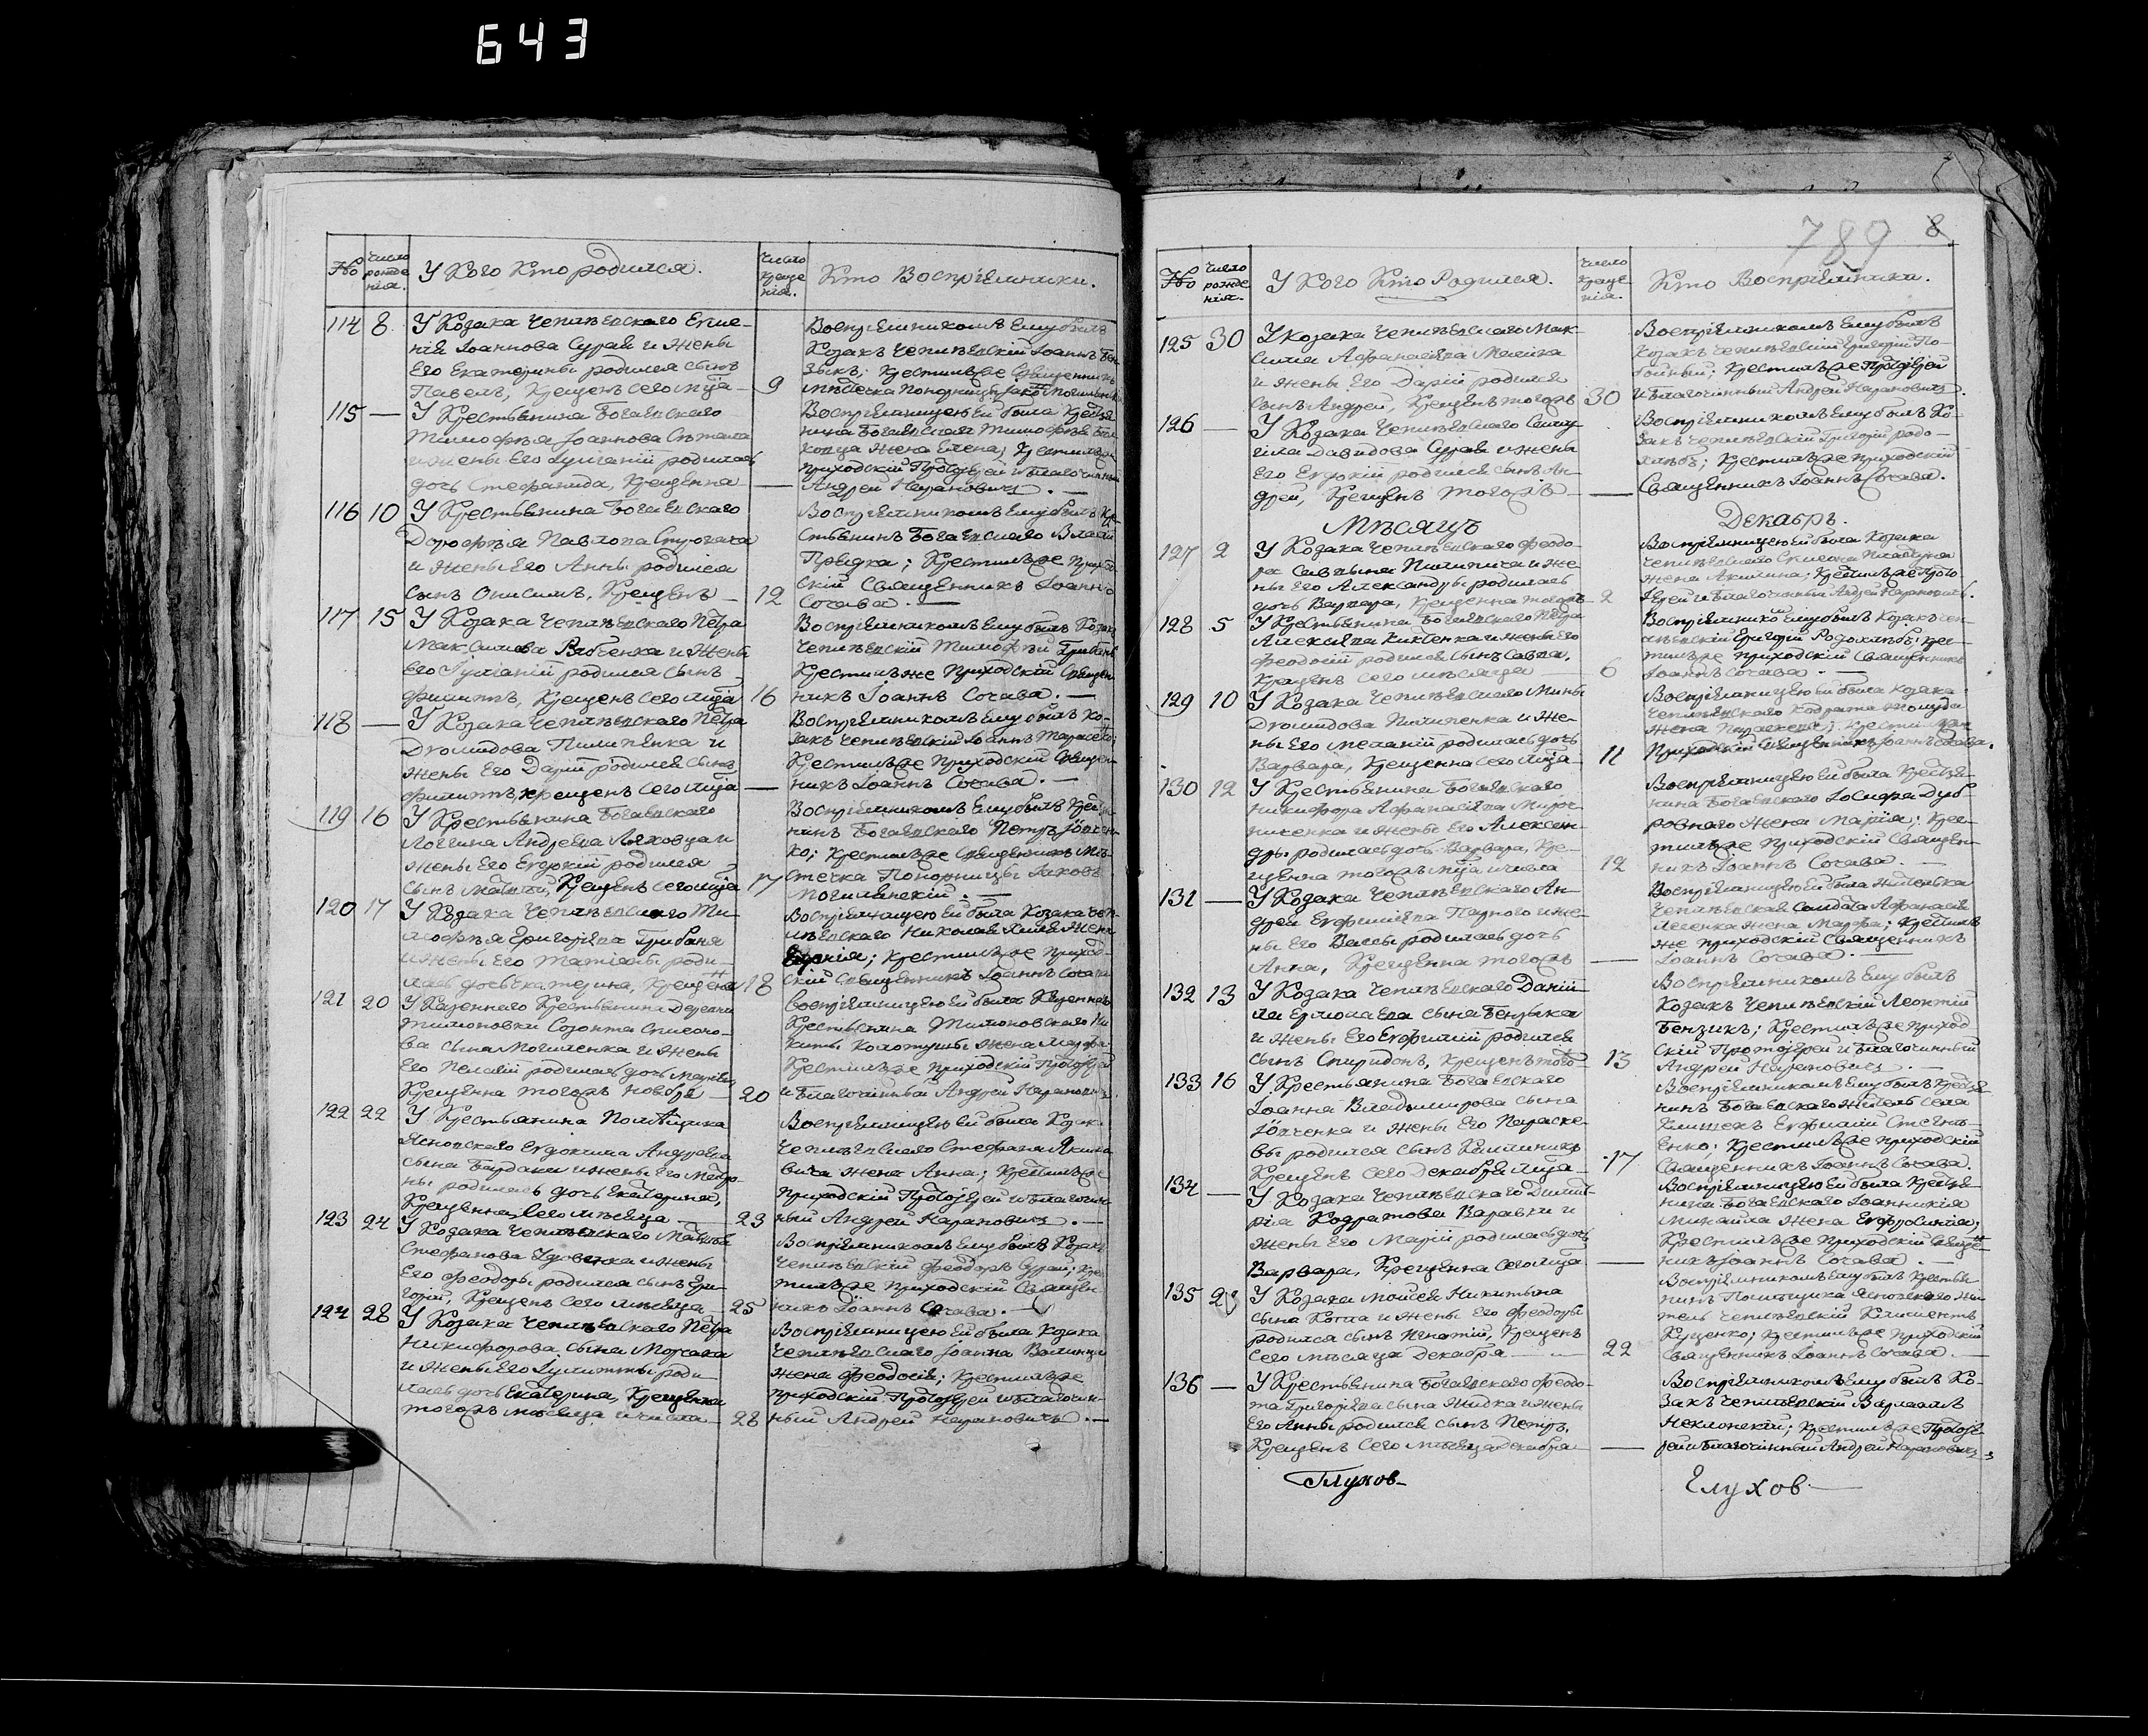 643
№ Число рожденія. У Кого Кто родился. Число Крещенія. Кто Воспріемники.
114 8 У Козака Чеплѣевскаго Евге-
нія Іоаннова Сурая и жены
Его Екатерины родился сынъ
Павелъ, Крещенъ сего мца 9
Воспріемникомъ Ему былъ
Козакъ Чеплѣевскій Іоаннъ
Крестилъ же Священникъ
Мѣстечка Понорницы
115 — У Крестьянина Богаевскаго
Тимофѣя Іоаннова
и жены Его Іуліаніи родилась
дочь Стефанида, Крещенна —
Воспріемницею Ей была Крестья
нина Богаевскаго Тимофѣя
жена Елена; Крестилъ же
приходскій Протоіерей и благочинный
Андрей Нарановичъ. —
116 10 У Крестьянина Богаевскаго
Дорофѣя Павлова
и жены Его Анны родился
сынъ Онисимъ, Крещенъ 12
Воспріемникомъ Ему былъ Кре-
стьянинъ Богаевскаго Власій
Крестилъ же приход
скій Священникъ Іоаннъ
Сочава. —
117 15 У Козака Чеплѣевскаго Петра
Максимова Рябченка и жены
его Іуліаніи родился сынъ
Филиппъ, Крещенъ сего мца 16
Воспріемникомъ Ему былъ Козакъ
Чеплѣевскій Тимофѣй Грибань
Крестилъ же Приходскій Священ
никъ Іоаннъ Сочава. —
118 — У Козака Чеплѣевскаго Петра
Дромидова Пилипенка и
жены Его Даріи родился сынъ
Филиппъ, крещенъ сего мца —
Воспріемникомъ Ему былъ Ко-
закъ Чеплѣевскій Іоаннъ
Крестилъ же Приходскій Священ
никъ Іоаннъ Сочава. —
119 16 У Крестьянина Богаевскаго
Логгина Андреева Ляховца и
жены Его Евдокіи родился
сынъ Матѳій, Крещенъ сего мца 17
Воспріемникомъ Ему былъ Крестья
нинъ Богаевскаго Петръ Юрчен-
ко; Крестилъ же Священникъ Мѣ-
стечка Понорницы Іаковъ
Могилянскій. —
120 17 У Козака Чеплѣевскаго Ти-
мофѣя Григоріева Грибаня
и жены Его Татіаны роди-
лась дочь Екатерина, Крещенна 18
Воспріемницею Ей была Козака Чеп-
лѣевскаго Николая жена
Крестилъ же приход-
скій Священникъ Іоаннъ Сочава
121 20 У Казеннаго Крестьянина Деревни
Тимоновки Созонта Симоно-
ва сына Могиленка и жены
Его Пелагіи родилась дочь
Крещенна тогожъ Ноября 20
Воспріемницею Ей была Казеннаго
Крестьянина Тимоновскаго Ни
киты Колотуши жена Марфа
Крестилъ же приходскій Протоіерей
и Благочинный Андрей Нарановичъ.
122 22 У Крестьянина Помѣщика
Яснопскаго Евдокима Андреева
сына Бардаки и жены Его Матро-
ны родилась дочь Екатерина,
Крещенна Сего мѣсяца 23
Воспріемницею Ей была Козака
Чеплѣевскаго Стефана Якимо
вича жена Анна; Крестилъ же
приходскій Протоіерей и благочин
ный Андрей Нарановичъ. —
123 24 У Козака Чеплѣевскаго Матвѣя
Стефанова Удовенка и жены
Его Феодоры родился сынъ Гри-
горій, Крещенъ сего мѣсяца 25
Воспріемникомъ Ему былъ Козакъ
Чеплѣевскій Феодоръ Сурай; Кре-
тилъ же приходскій Священ
никъ Іоаннъ Сочава. —
124 28 У Козака Чеплѣевскаго Петра
Никифорова сына Моржака
и жены Его Іулитты роди
лась дочь Екатерина, Крещенна
тогожъ мѣсяца и числа 28
Воспріемницею Ей была Козака
Чеплѣевскаго Іоанна Волынца
жена Феодосія; Крестилъ же
приходскій Протоіерей и благочин-
ный Андрей Нарановичъ. —
789 8
№ Число рожденія. У Кого Кто Родился. Число Крещенія. Кто Воспріемники.
125 30 У Козака Чеплѣевскаго Мак-
сима Афанасіева
и жены Его Даріи родился
сынъ Андрей, Крещенъ тогожъ 30
Воспріемникомъ Ему былъ
Козакъ Чеплѣевскій Григорій
Крестилъ же Протоіерей
и Благочинный Андрей Нарановичъ.
126 — У Козака Чеплѣевскаго Саму
іла Давидова Сурая и жены
Его Евдокіи родился сынъ Ан-
дрей, Крещенъ тогожъ —
Воспріемникомъ Ему былъ Ко-
закъ Чеплѣевскій Григорій Родо-
хлѣбъ; Крестилъ же приходскій
Священникъ Іоаннъ Сочава.
Мѣсяцъ Декабрь.
127 2 У Козака Чеплѣевскаго Феодо-
ра Саввина Пилипича и же-
ны Его Александры родилась
дочь Варвара, Крещенна тогожъ 2
Воспріемницею Ей была Козака
Чеплѣевскаго Симона
жена Акилина; Крестилъ же Прото
іерей и Благочинный Андрей Нарановичъ.
128 5 У Крестьянина Богаевскаго Петра
Алексіева Кихтенка и жены Его
Феодосіи родился сынъ Савва,
Крещенъ сего мѣсяца 6
Воспріемникомъ Ему былъ Козакъ Чеп-
лѣевскій Григорій Родохлѣбъ; Крес-
тилъ же приходскій Священникъ
Іоаннъ Сочава. —
129 10 У Козака Чеплѣевскаго Мины
Дромидова Пилипенка и же-
ны Его Меланіи родилась дочь
Варвара, Крещенна сего мца 11
Воспріемницею Ей была Козака
Чеплѣевскаго Кодрата
жена Крестилъ же
Приходскій Священникъ Іоаннъ Сочава.
130 12 У Крестьянина Богаевскаго
Никифора Афанасіева Миро-
ниченка и жены Его Алексан-
дры родилась дочь Варвара, Кре-
щенна тогожъ мца и числа 12
Воспріемницею Ей была Крестья-
нина Богаевскаго Іосифа Дуб-
ровнаго жена Марія; Крес-
тилъ же приходскій Священ-
никъ Іоаннъ Сочава. —
131 — У Козака Чеплѣевскаго Ан-
дрея Евфиміева Парного и же-
ны Его Вассы родилась дочь
Анна, Крещенна тогожъ —
Воспріемницею Ей была Жителька
Чеплѣевская Солдата Афанасія
жена Марфа; Крестилъ
же приходскій Священникъ
Іоаннъ Сочава. —
132 13 У Козака Чеплѣевскаго Даніи-
ла Ермолаева сына Бензика
и жены Его Евфиміи родился
сынъ Спиридонъ, Крещенъ тогожъ 13
Воспріемникомъ Ему былъ
Козакъ Чеплѣевскій Леонтій
Бензикъ; Крестилъ же приход-
скій Протоіерей и Благочинный
Андрей Нарановичъ. —
133 16 У Крестьянина Богаевскаго
Іоанна Владимирова сына
Юрченка и жены Его Параске-
вы родился сынъ
Крещенъ сего Декабря мца 17
Воспріемникомъ Ему былъ Крестья
нинъ Богаевскаго Житель села
Евфимій
Крестилъ же приходскій
Священникъ Іоаннъ Сочава.
134 — У Козака Чеплѣевскаго Дими-
рія Кодратова Варавки и
жены Его Маріи родилась дочь
Варвара, Крещенна сего мца —
Воспріемницею Ей была Крестья-
нина Богаевскаго Іоанникія
Михайла жена Евфросинія;
Крестилъ же приходскій Священ-
никъ Іоаннъ Сочава. —
135 У Козака Моисея Никитына
сына Котла и жены Его Феодоры
родился сынъ Игнатій, Крещенъ
сего мѣсяца Декабря 22
Воспріемникомъ Ему былъ Крестья
нинъ Помѣщика Яснопскаго Жи-
тель Чеплѣевскій Климентъ
Куценко; Крестилъ же приходскій
Священникъ Іоаннъ Сочава. —
136 — У Крестьянина Богаевскаго Феодо-
та Григоріева сына Жидка и жены
Его Анны родился сынъ Петръ,
Крещенъ Сего мѣсяца Декабря —
Воспріемникомъ Ему былъ Ко-
закъ Чеплѣевскій Варлаамъ
Неклонскій; Крестилъ же Протоіе
рей и Благочинный Андрей Нарановичъ
Глухов Глухов